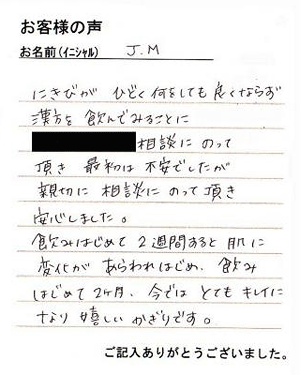 お客様の声
お名前(イニシャル) J.M
にきびが ひどく何をしても良くならず
漢方を 飲んでみることに
相談に のって
頂き 最初は 不安でしたが
親切に 相談に のって頂き
安心しました。
飲みはじめて 2週間すると 肌に
変化が あらわれはじめ、飲み
はじめて 2ヶ月、今では とても キレイに
なり 嬉しい かぎりです。
ご記入ありがとうございました。